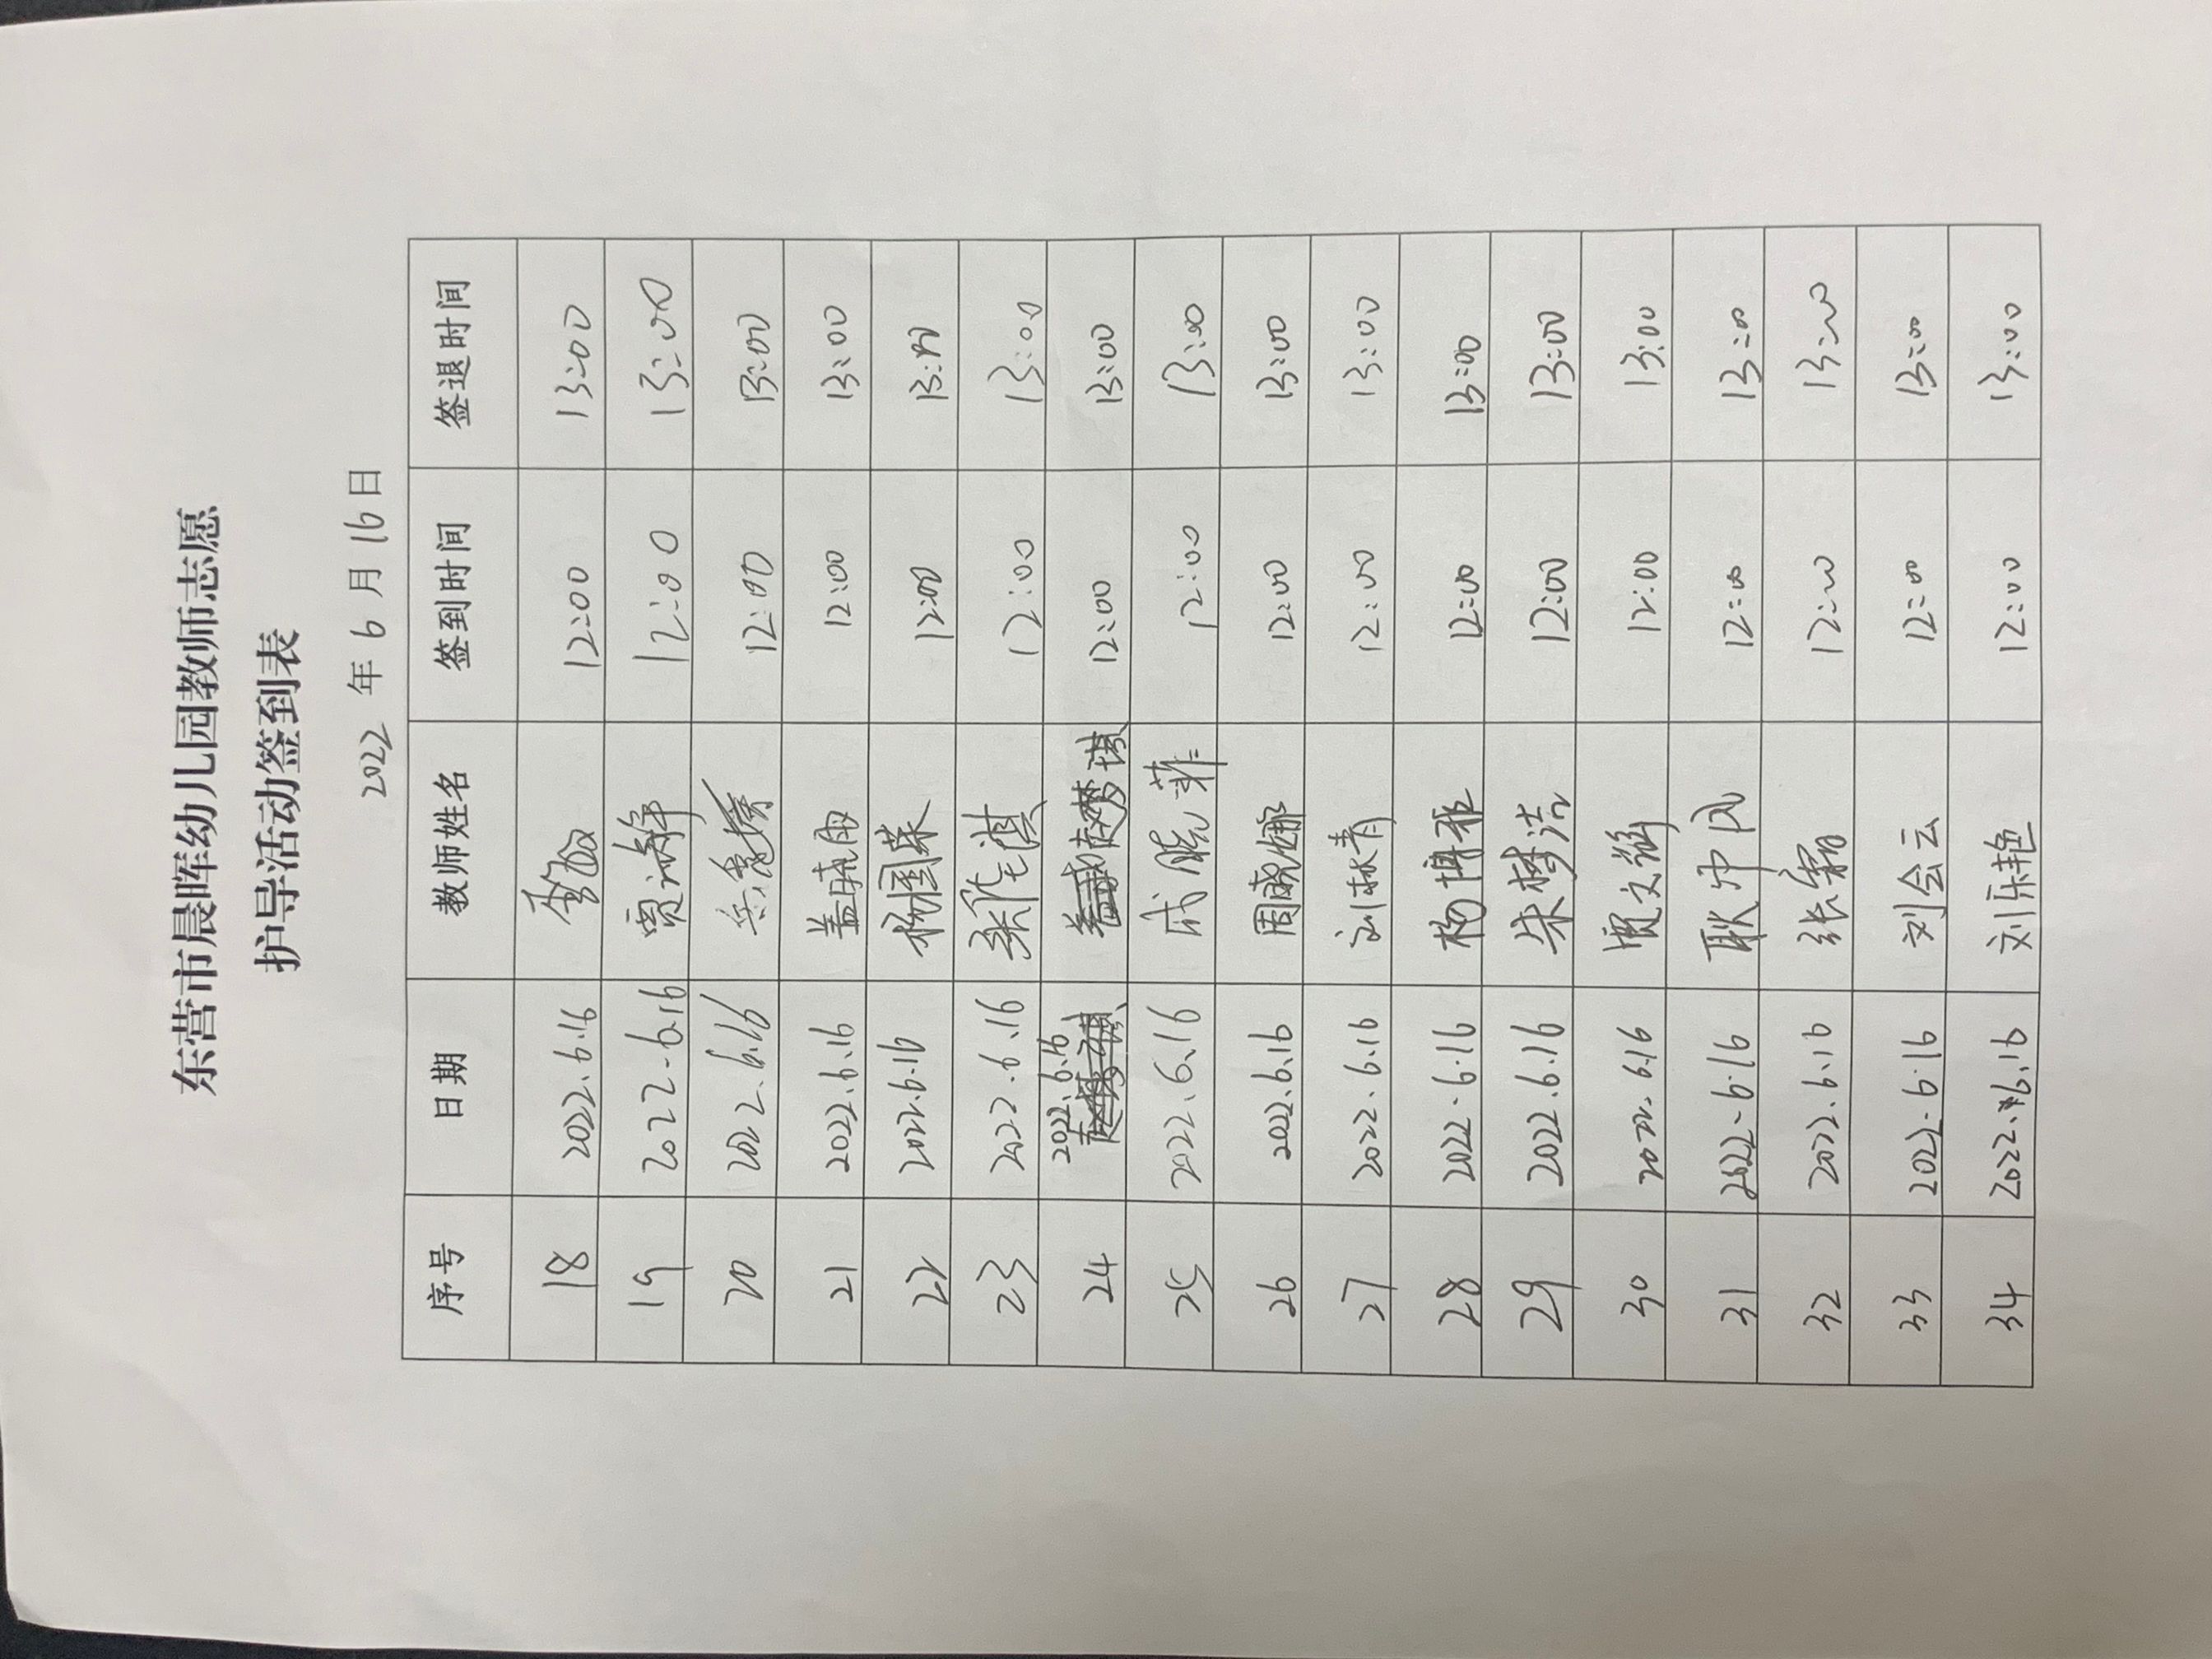 东营市晨晖幼儿园教师志愿
护导活动签到表
2022 年 6 月 16 日
序号 日期 教师姓名 签到时间 签退时间
18 2022.6.16 12:00 13:00
19 2022.6.16 贾 12:00 13:00
20 2022.6.16 12:00 13:00
21 2022.6.16 盖 12:00 13:00
22 2022.6.16 杨国荣 12:00 13:00
23 2022.6.16 12:00 13:00
24 2022.6.16 赵梦琪 12:00 13:00
25 2022.6.16 成晓菲 12:00 13:00
26 2022.6.16 周晓娜 12:00 13:00
27 2022.6.16 刘秋青 12:00 13:00
28 2022.6.16 杨博雅 12:00 13:00
29 2022.6.16 朱梦洁 12:00 13:00
30 2022.6.16 贾文 12:00 13:00
31 2022.6.16 耿中风 12:00 13:00
32 2022.6.16 张霜 12:00 13:00
33 2022.6.16 刘会云 12:00 13:00
34 2022.6.16 刘乐艳 12:00 13:00